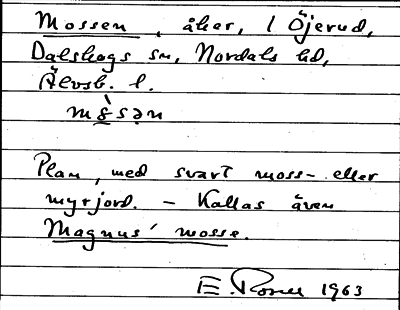 Mossen, åker, i Öjerud,
Dalskogs sn, Nordals hd,
Älvsb. l.
mɞ̀sən
Plan, med svart moss- eller
myrjord. – Kallas även
Magnus' mosse.
E. 1963